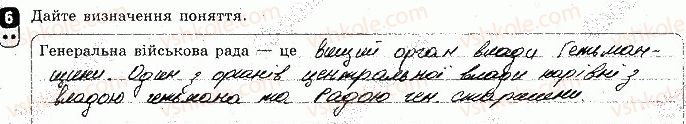 6 Дайте визначення поняття.
Генеральна військова рада — це вищий орган влади Гетьман-
щини. Один з органів центральної влади нарівні з
владою гетьмана та Радою ген. старшини.